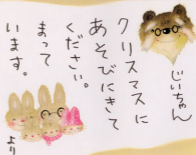 じいちゃん
クリスマスに
あそびにきて
ください。
まって
います。
より